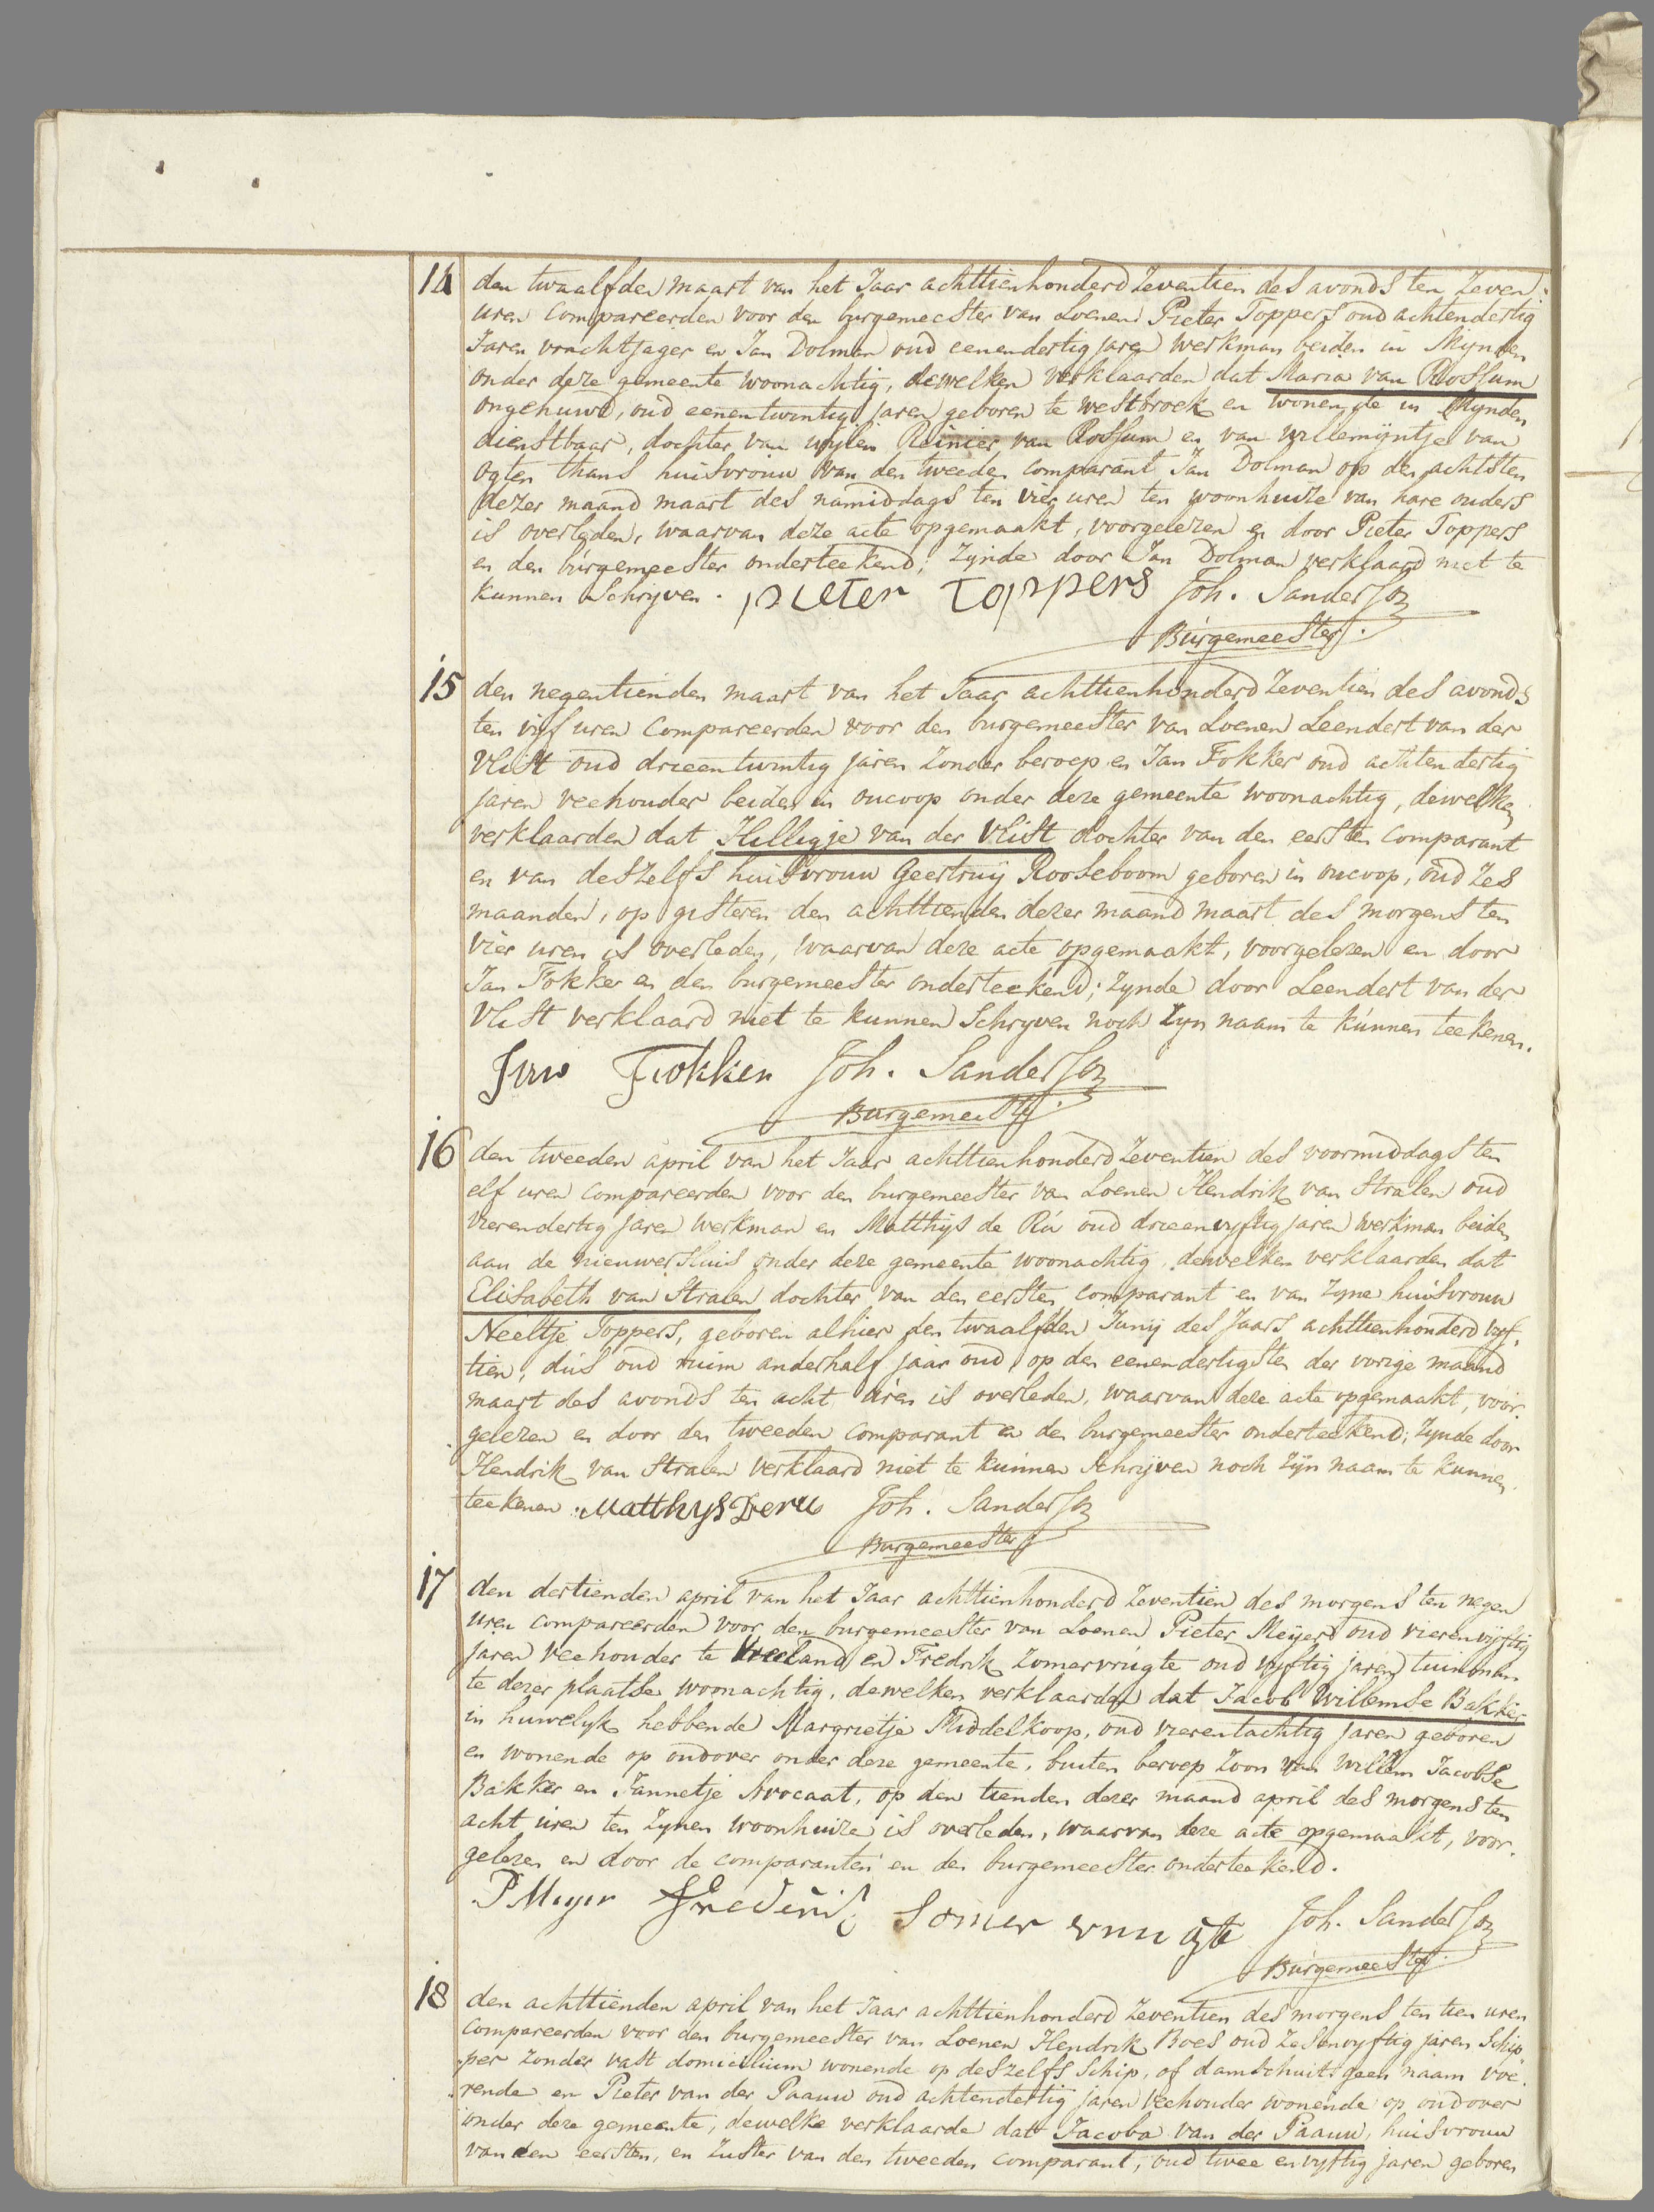 14 den twaalfden maart van het Jaar achttienhonderd zeventien des avonds ten zeven
uren Compareerden voor den burgemeester van Loenen Pieter Toppers oud achtendertig
Jaren vrachtjager en Jan Dolman oud eenendertig jaren werkman beiden in Mynden
onder deze gemeente woonachtig, dewelken verklaarden dat Maria van Rossum
ongehuwd, oud eenentwintig jaren geboren te westbroek en wonende in Mynden
dienstbaar, dochter van wylen Reinier van Rossum en van willemijntje van
ogten thans huisvrouw van den tweeden comparant Jan Dolman op den achtsten
dezer maand maart des namiddags ten vier uren ten woonhuize van hare ouders
is overleden, waarvan deze acte opgemaakt, voorgelezen en door Pieter Toppers
en den burgemeester onderteekend; zynde door Jan Dolman verklaard niet te
kunnen Schryven. pieter toppers Joh. Sanderson
Burgemeester.
15 den negentienden maart van het Jaar achttienhonderd zeventien des avonds
ten vijf uren Compareerden voor den burgemeester van Loenen Leendert van der
Vlist oud drieentwintig jaren zonder beroep en Jan Fokker oud achtendertig
jaren veehouder beiden in oucoop onder deze gemeente woonachtig, dewelken
verklaarden dat Hilligje van der Vlist dochter van den eersten Comparant
en van deszelfs huisvrouw Geertruij Rooseboom geboren in oucoop, oud zes
maanden, op gisteren den achttienden dezer maand maart des morgens ten
vier uren is overleden, waarvan deze acte opgemaakt, voorgelezen en door
Jan Fokker en den burgemeester onderteekend; zynde door Leendert van der
Vlist verklaard niet te kunnen Schryven noch zyn naam te kunnen teekenen.
Jan Fokker Joh. Sanderson
Burgemeester.
16 den tweeden april van het Jaar achttienhonderd zeventien des voormiddags ten
elf uren compareerden voor den burgemeester van Loenen Hendrik van Stralen oud
vierendertig jaren werkman en Matthijs de Rú oud drieenvyftig jaren werkman beiden
aan de nieuwersluis onder deze gemeente woonachtig, dewelken verklaarden dat
Elisabeth van Stralen dochter van den eersten comparant en van zyne huisvrouw
Neeltje Toppers, geboren alhier den twaalfden Junij des Jaars achttienhonderd vyf-
tien, dus oud ruim anderhalf jaar oud, op den eenendertigsten der vorige maand
maart des avonds ten acht uren is overleden, waarvan deze acte opgemaakt, voor-
gelezen en door den tweeden comparant en den burgemeester onderteekend; zynde door
Hendrik van Stralen verklaard niet te kunnen schrijven noch zijn naam te kunnen
teekenen. Matthys Deru Joh. Sanderson
Burgemeester.
17 den dertienden april van het Jaar achttienhonderd zeventien des morgens ten negen
uren compareerden voor den burgemeester van Loenen Pieter Meijers oud vierenvijftig
jaren veehouder te Vreeland en Fredrik Zomervrugte oud vyftig jaren tuinman
te dezer plaatse woonachtig, dewelken verklaarden dat Jacob Willemse Bakker
in huwelyk hebbende Margrietje Middelkoop, oud vierentachtig jaren geboren
en wonende op oudover onder deze gemeente, buiten beroep Zoon van Willem Jacobse
Bakker en Jannetje Avocaat, op den tienden dezer maand april des morgens ten
acht uren ten zynen woonhuize is overleden, waarvan deze acte opgemaakt, voor-
gelezen en door de comparanten en den burgemeester onderteekend.
P Meyer Frederik Somervrugte Joh. Sanderson
Burgemeester.
18 den achttienden april van het Jaar achttienhonderd zeventien des morgens ten tien uren
compareerden voor den burgemeester van Loenen Hendrik Boes oud zesenvyftig jaren Schip
per zonder vast domicilium wonende op deszelfs Schip, of damschuit geen naam voe-
rende en Pieter van der Paauw oud achtendertig jaren veehouder wonende op oudover
onder deze gemeente, dewelke verklaarde dat Jacoba van der Paauw, huisvrouw
van den eersten, en Zuster van den tweeden comparant, oud twee en vyftig jaren geboren